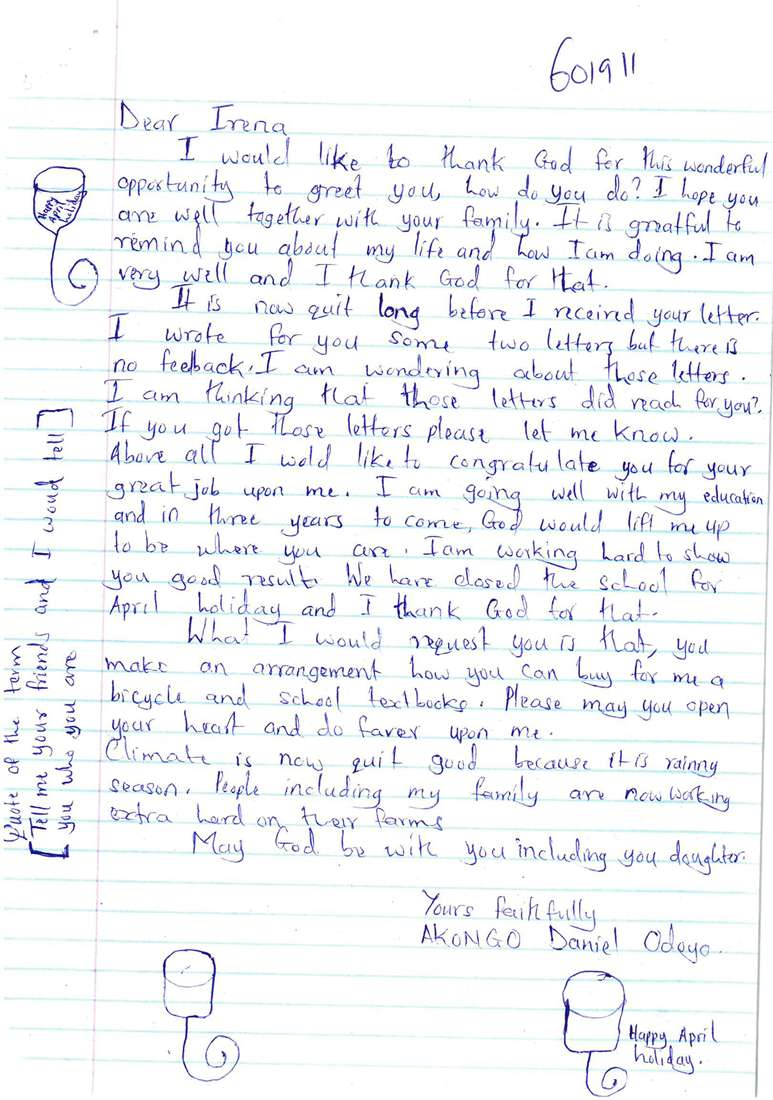 601911
Dear Irena
I would like to thank God for this wonderful
opportunity to greet you, how do you do? I hope you
are well together with your family. It is greatful to
remind you about my life and how I am doing. I am
very well and I thank God for that.
It is now quit long before I received your letter.
I wrote for you some two letters but there is
no feelback. I am wondering about those letters.
I am thinking that those letters did reach for you?.
If you got those letters please let me know.
Above all I wold like to congratulate you for your
great job upon me. I am going well with my education
and in three years to come, God would lift me up
to be where you are. I am working hard to show
you good result. We have closed the school for
April holiday and I thank God for that.
What I would request you is that, you
make an arrangement how you can buy for me a
bicycle and school textbooks. Please may you open
your heart and do faver upon me.
Climate is now quit good because it is rainny
season. People including my family are now working
extra hard on their farms
May God be with you including you daughter.
Yours faithfully
AKONGO Daniel Odoyo.
Happy April
holiday
Quote of the term
[Tell me your friends and I woud tell]
you who you are
Happy April
holiday.